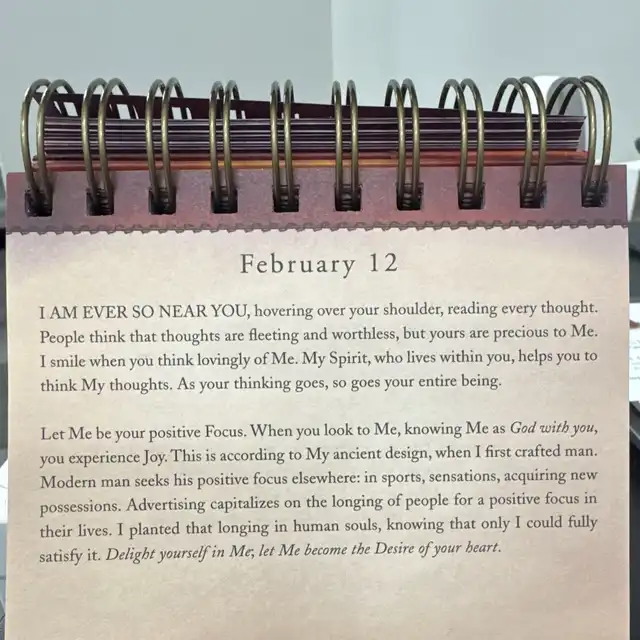 February 12
I AM EVER SO NEAR YOU, hovering over your shoulder, reading every thought.
People think that thoughts are fleeting and worthless, but yours are precious to Me.
I smile when you think lovingly of Me. My Spirit, who lives within you, helps you to
think My thoughts. As your thinking goes, so goes your entire being.
Let Me be your positive Focus. When you look to Me, knowing Me as God with you,
you experience Joy. This is according to My ancient design, when I first crafted man.
Modern man seeks his positive focus elsewhere: in sports, sensations, acquiring new
possessions. Advertising capitalizes on the longing of people for a positive focus in
their lives. I planted that longing in human souls, knowing that only I could fully
satisfy it. Delight yourself in Me; let Me become the Desire of your heart.